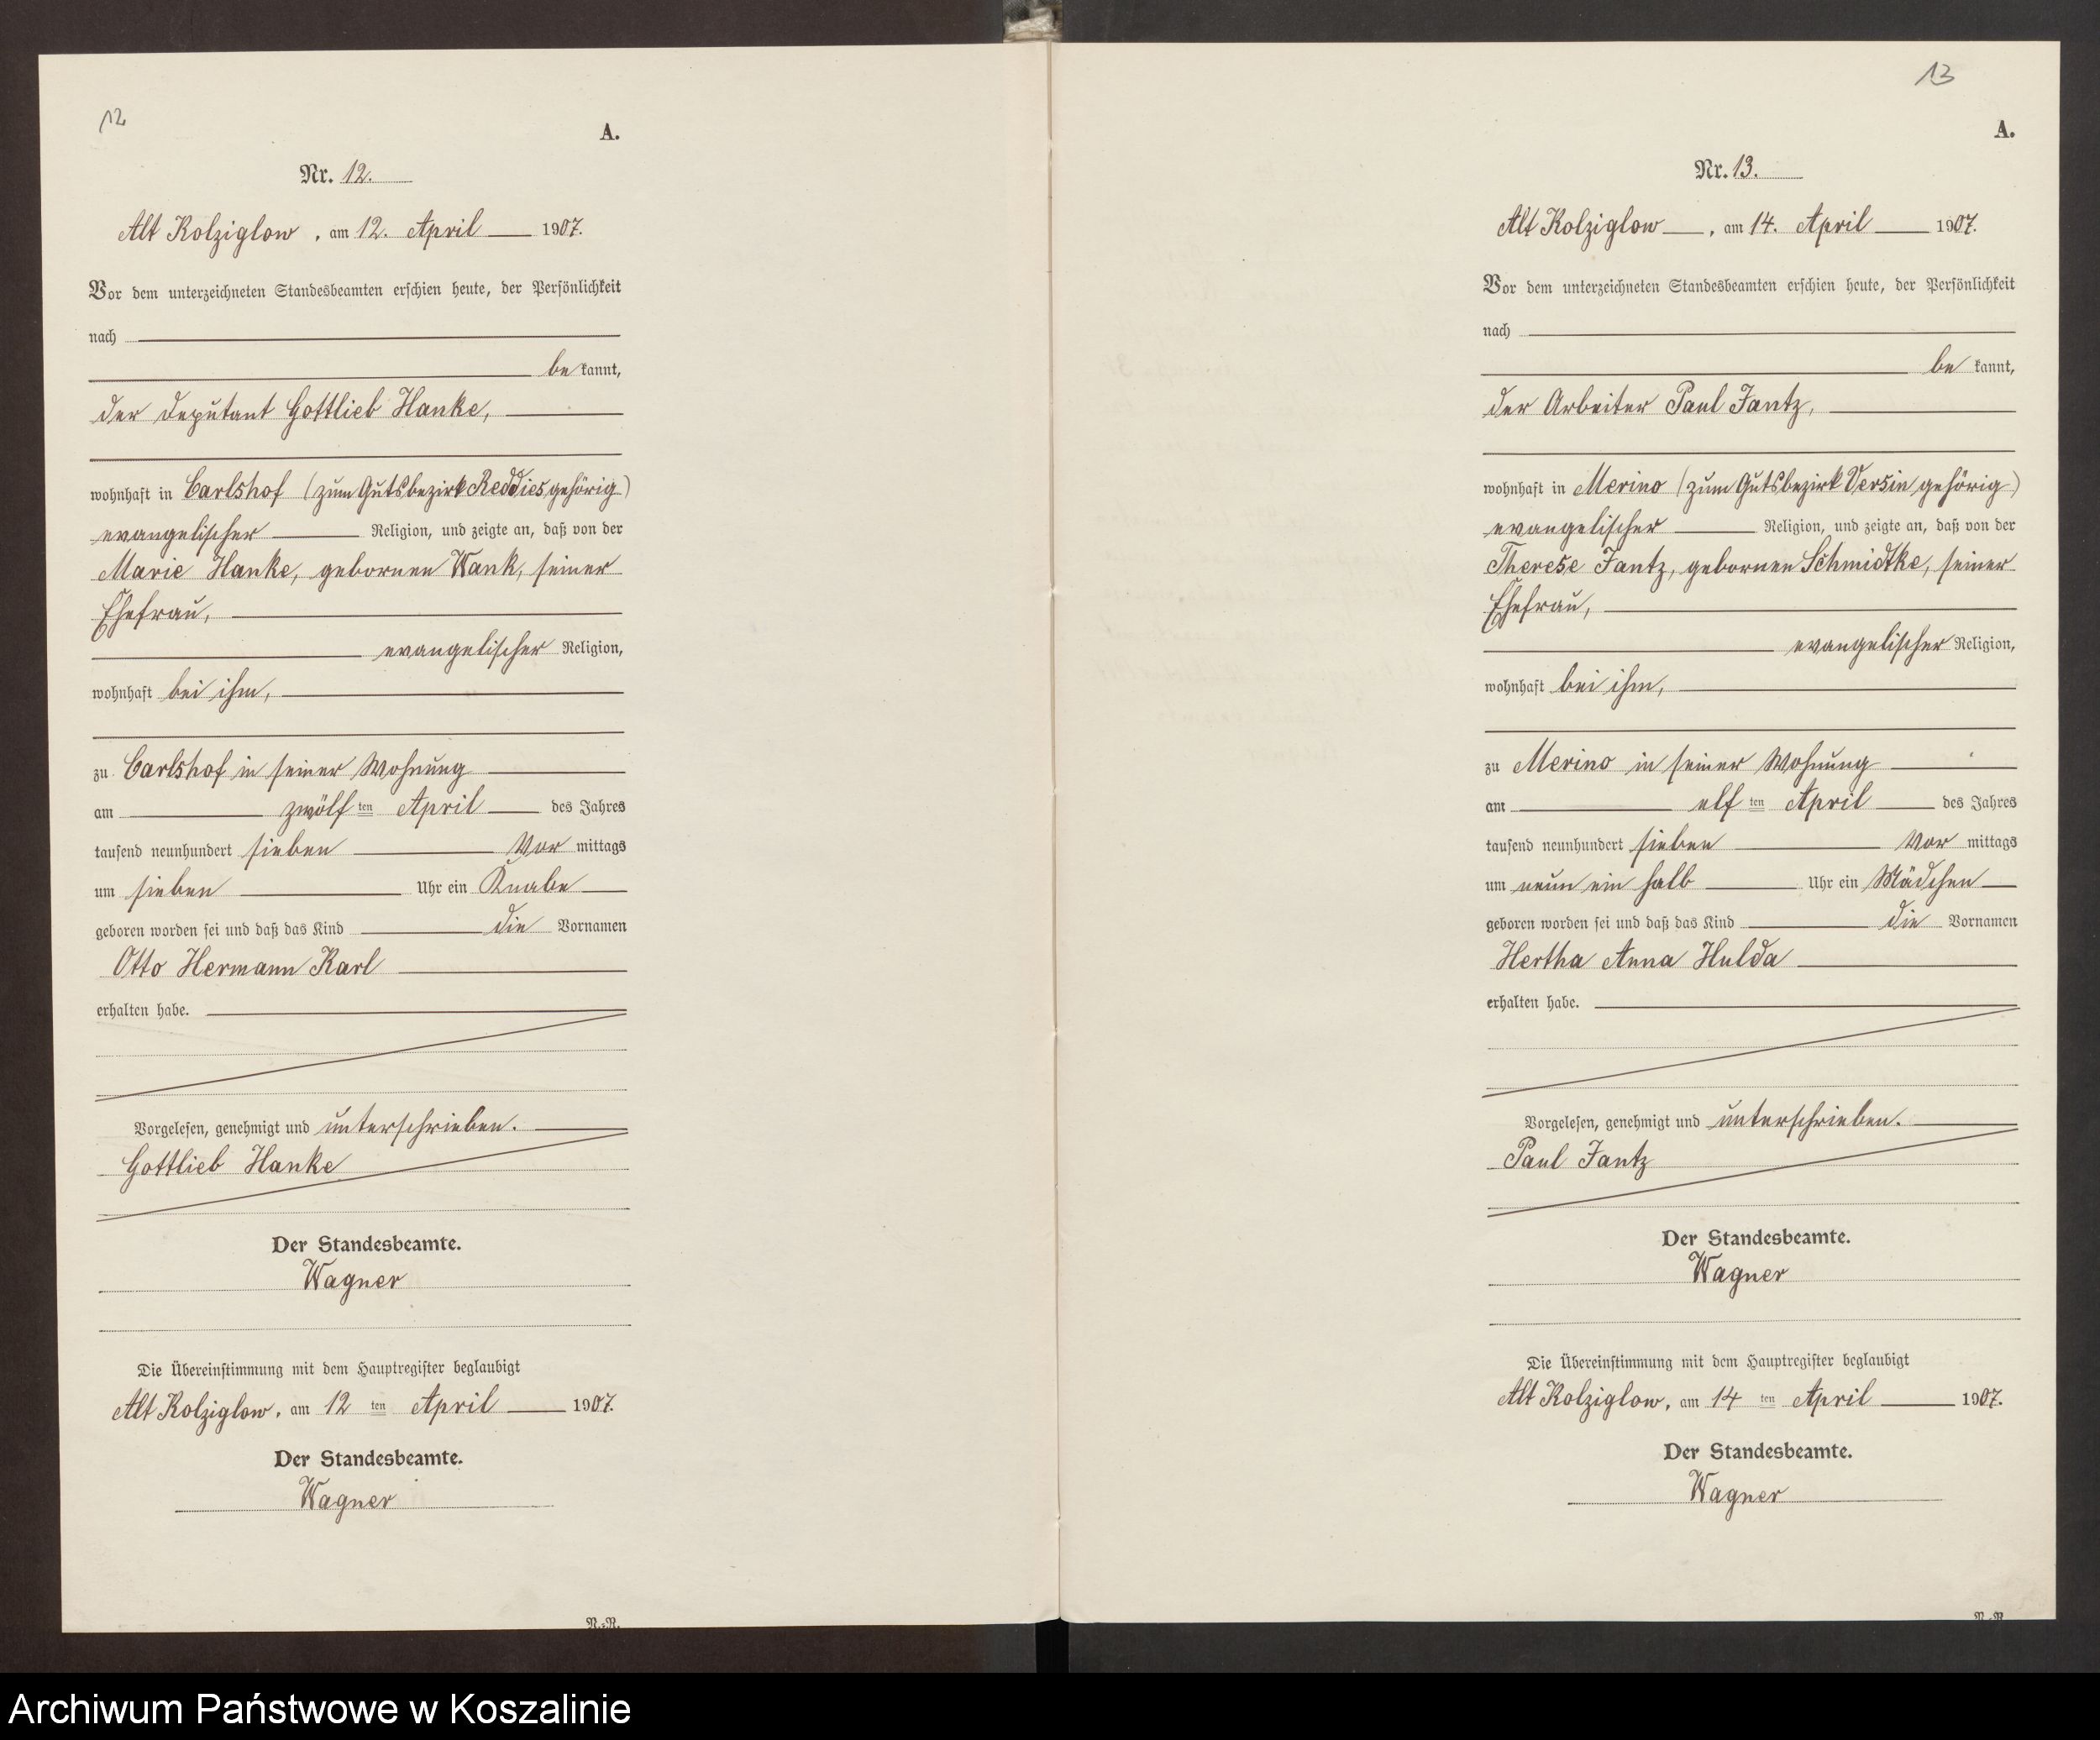 12
A.
Nr. 12.
Alt Kolziglow, am 12. April 1907.
Vor dem unterzeichneten Standesbeamten erschien heute, der Persönlichkeit
nach
be kannt,
der Deputant Gottlieb Hanke,
wohnhaft in Carlshof (zum Gutsbezirk Reddies gehörig)
evangelischer Religion, und zeigte an, daß von der
Marie Hanke, gebornen Wank, seiner
Ehefrau,
evangelischer Religion,
wohnhaft bei ihm,
zu Carlshof in seiner Wohnung
am zwölf ten April des Jahres
tausend neunhundert sieben Vor mittags
um sieben Uhr ein Knabe
geboren worden sei und daß das Kind die Vornamen
Otto Hermann Karl
erhalten habe.
Vorgelesen, genehmigt und unterschrieben.
Gottlieb Hanke
Der Standesbeamte.
Wagner
Die Übereinstimmung mit dem Hauptregister beglaubigt
Alt Kolziglow, am 12 ten April 1907.
Der Standesbeamte.
Wagner
N.-R.
13
A.
Nr. 13.
Alt Kolziglow, am 14. April 1907.
Vor dem unterzeichneten Standesbeamten erschien heute, der Persönlichkeit
nach
be kannt,
der Arbeiter Paul Jantz,
wohnhaft in Merino (zum Gutsbezirk Versin gehörig)
evangelischer Religion, und zeigte an, daß von der
Therese Jantz, gebornen Schmidtke, seiner
Ehefrau,
evangelischer Religion,
wohnhaft bei ihm,
zu Merino in seiner Wohnung
am elf ten April des Jahres
tausend neunhundert sieben Vor mittags
um neun ein halb Uhr ein Mädchen
geboren worden sei und daß das Kind die Vornamen
Hertha Anna Hulda
erhalten habe.
Vorgelesen, genehmigt und unterschrieben.
Paul Jantz
Der Standesbeamte.
Wagner
Die Übereinstimmung mit dem Hauptregister beglaubigt
Alt Kolziglow, am 14 ten April 1907.
Der Standesbeamte.
Wagner
N.-R.
Archiwum Państwowe w Koszalinie